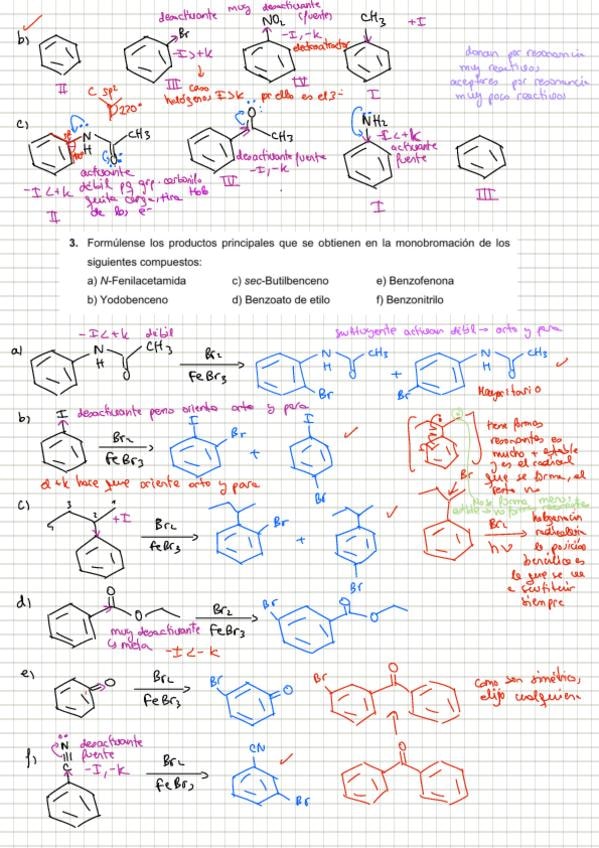 desactivante muy desactivante
NO₂ (fuerte)
CH₃ +I
b)
Br
-I>+K
-I,-K
electroatractor
II III IV I
caso halógenos I>K por ello es el 3
donan por resonancia
muy reactivos
aceptores por resonancia
muy poco reactivos
C sp²
120°
c)
N
H
O
CH₃
activante
débil pq grp. carbonilo
-I<+K
quita carga, tira
de los e⁻
II
O
CH₃
desactivante fuerte
-I,-K
IV
NH₂
-I<+K
activante
fuerte
I
III
3. Formúlense los productos principales que se obtienen en la monobromación de los
siguientes compuestos:
a) N-Fenilacetamida c) sec-Butilbenceno e) Benzofenona
b) Yodobenceno d) Benzoato de etilo f) Benzonitrilo
-I<+K débil
sustituyente activan débil → orto y para
a)
N
H
O
CH₃
Br₂
FeBr₃
N
H
O
CH₃
Br
+
N
H
O
CH₃
Br
Mayoritario
b)
I desactivante pero orienta orto y para
Br₂
FeBr₃
I
Br
+
I
Br
el +K hace que oriente orto y para
tiene formas
resonantes es
mucho + estable
y es el radical
que se forma, el
resto no
c)
3 4
2
+I
Br₂
FeBr₃
Br
+
Br
Br
Br₂
hν
halogenación
radicalaria
la posición
bencílica es
la que se va
a sustituir
siempre
d)
O
O
muy desactivante
↳ meta
-I<-K
Br₂
FeBr₃
Br
O
O
e)
O
Br₂
FeBr₃
Br
O
Br
O
Como son simétricos,
elijo cualquiera
f)
N
C
desactivante
fuerte
-I,-K
Br₂
FeBr₃
CN
Br
O